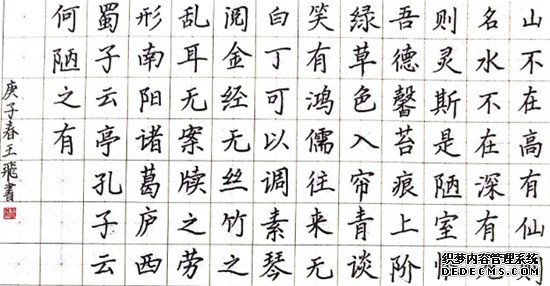 山不在高有仙则
名水不在深有
则灵斯是陋室惟
吾德馨苔痕上阶
绿草色入帘青谈
笑有鸿儒往来无
白丁可以调素琴
阅金经无丝竹之
乱耳无案牍之劳
形南阳诸葛庐西
蜀子云亭孔子云
何陋之有
庚子春王飛書
织梦内容管理系统
DEDECMS.COM